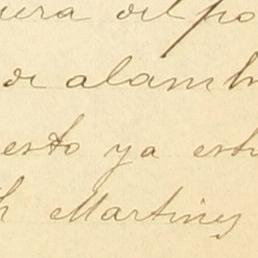 del po
de alamb
esto ya est
Martines